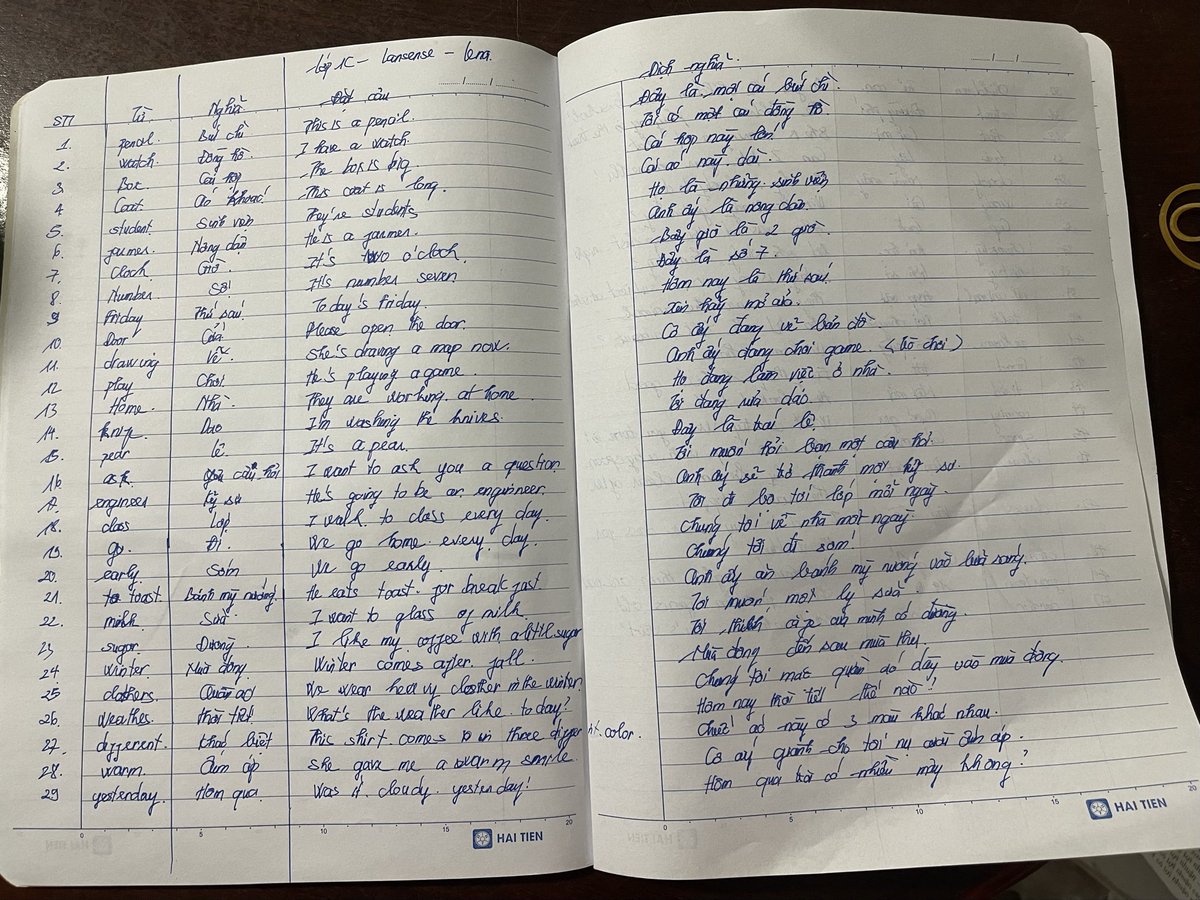 Lớp 1C - Lansense - lena.
STT Từ Nghĩa Đặt câu
1. pencil Bút chì This is a pencil.
2. watch Đồng hồ. I have a watch.
3 Box Cái hộp The box is big
4 Coat Áo khoác This coat is long.
5. student. Sinh viên They're students
6. farmer. Nông dân He is a farmer.
7. Clock Giờ. It's two o'clock.
8. Number. Số. It's number seven
9 Friday Thứ sáu. Today's Friday.
10 Door Cửa. Please open the door.
11. drawing Vẽ. She's drawing a map now.
12 play Chơi. He's playing a game.
13 Home. Nhà They are working at home
14. knife Dao I'm washing the knives.
15. pear lê. It's a pear.
16. ask câu hỏi I want to ask you a question
17. engineer kỹ sư He's going to be an enguineer.
18. class Lớp I walk to class every day.
19. go. Đi. We go home every day.
20. early. Sớm We go early.
21. toast. Bánh mỹ nướng. He eats toast for break fast.
22. milk Sữa I want to glass of milk.
23 sugar. Đường. I like my coffee with a littil sugar
24 Winter. Mùa đông. Winter comes after fall.
25 clothers. Quần áo We wear heavy clother in the winter.
26. Weather. thời tiết. What's the weather like today?
27. different. khác biệt This shirt comes in three different color.
28. warm. ấm áp she gave me a warm smile.
29 yesterday. Hôm qua. Was it cloudy yesterday?
HAI TIEN
Dịch nghĩa.
Đây là một cái bút chì.
Tôi có một cái đồng hồ.
Cái hộp này lớn.
Cái áo này dài.
Họ là những sinh viên
Anh ấy là nông dân.
Bây giờ là 2 giờ.
Đây là số 7.
Hôm nay là thứ sáu.
Xin hãy mở cửa.
Cô ấy đang vẽ bản đồ
Anh ấy đang chơi game. (trò chơi)
Họ đang làm việc ở nhà.
Tôi đang rửa dao.
Đây là trái lê.
Tôi muốn hỏi bạn một câu hỏi.
Anh ấy sẽ trở thành một kỹ sư.
Tôi đi bộ tới lớp mỗi ngày.
Chúng tôi về nhà một ngày.
Chúng tôi đi sớm.
Anh ấy ăn banh mỹ nướng vào bữa sáng.
Tôi muốn một ly sữa.
Tôi thích cà fe của mình có đường.
Mùa đông đến sau mùa thu.
Chúng tôi mặc quần áo dày vào mùa đông.
Hôm nay thời tiết thế nào?
Chiếc áo này có 3 màu khác nhau.
Cô ấy giành cho tôi nụ cười ấm áp.
Hôm qua trời có nhiều mây không?
HAI TIEN